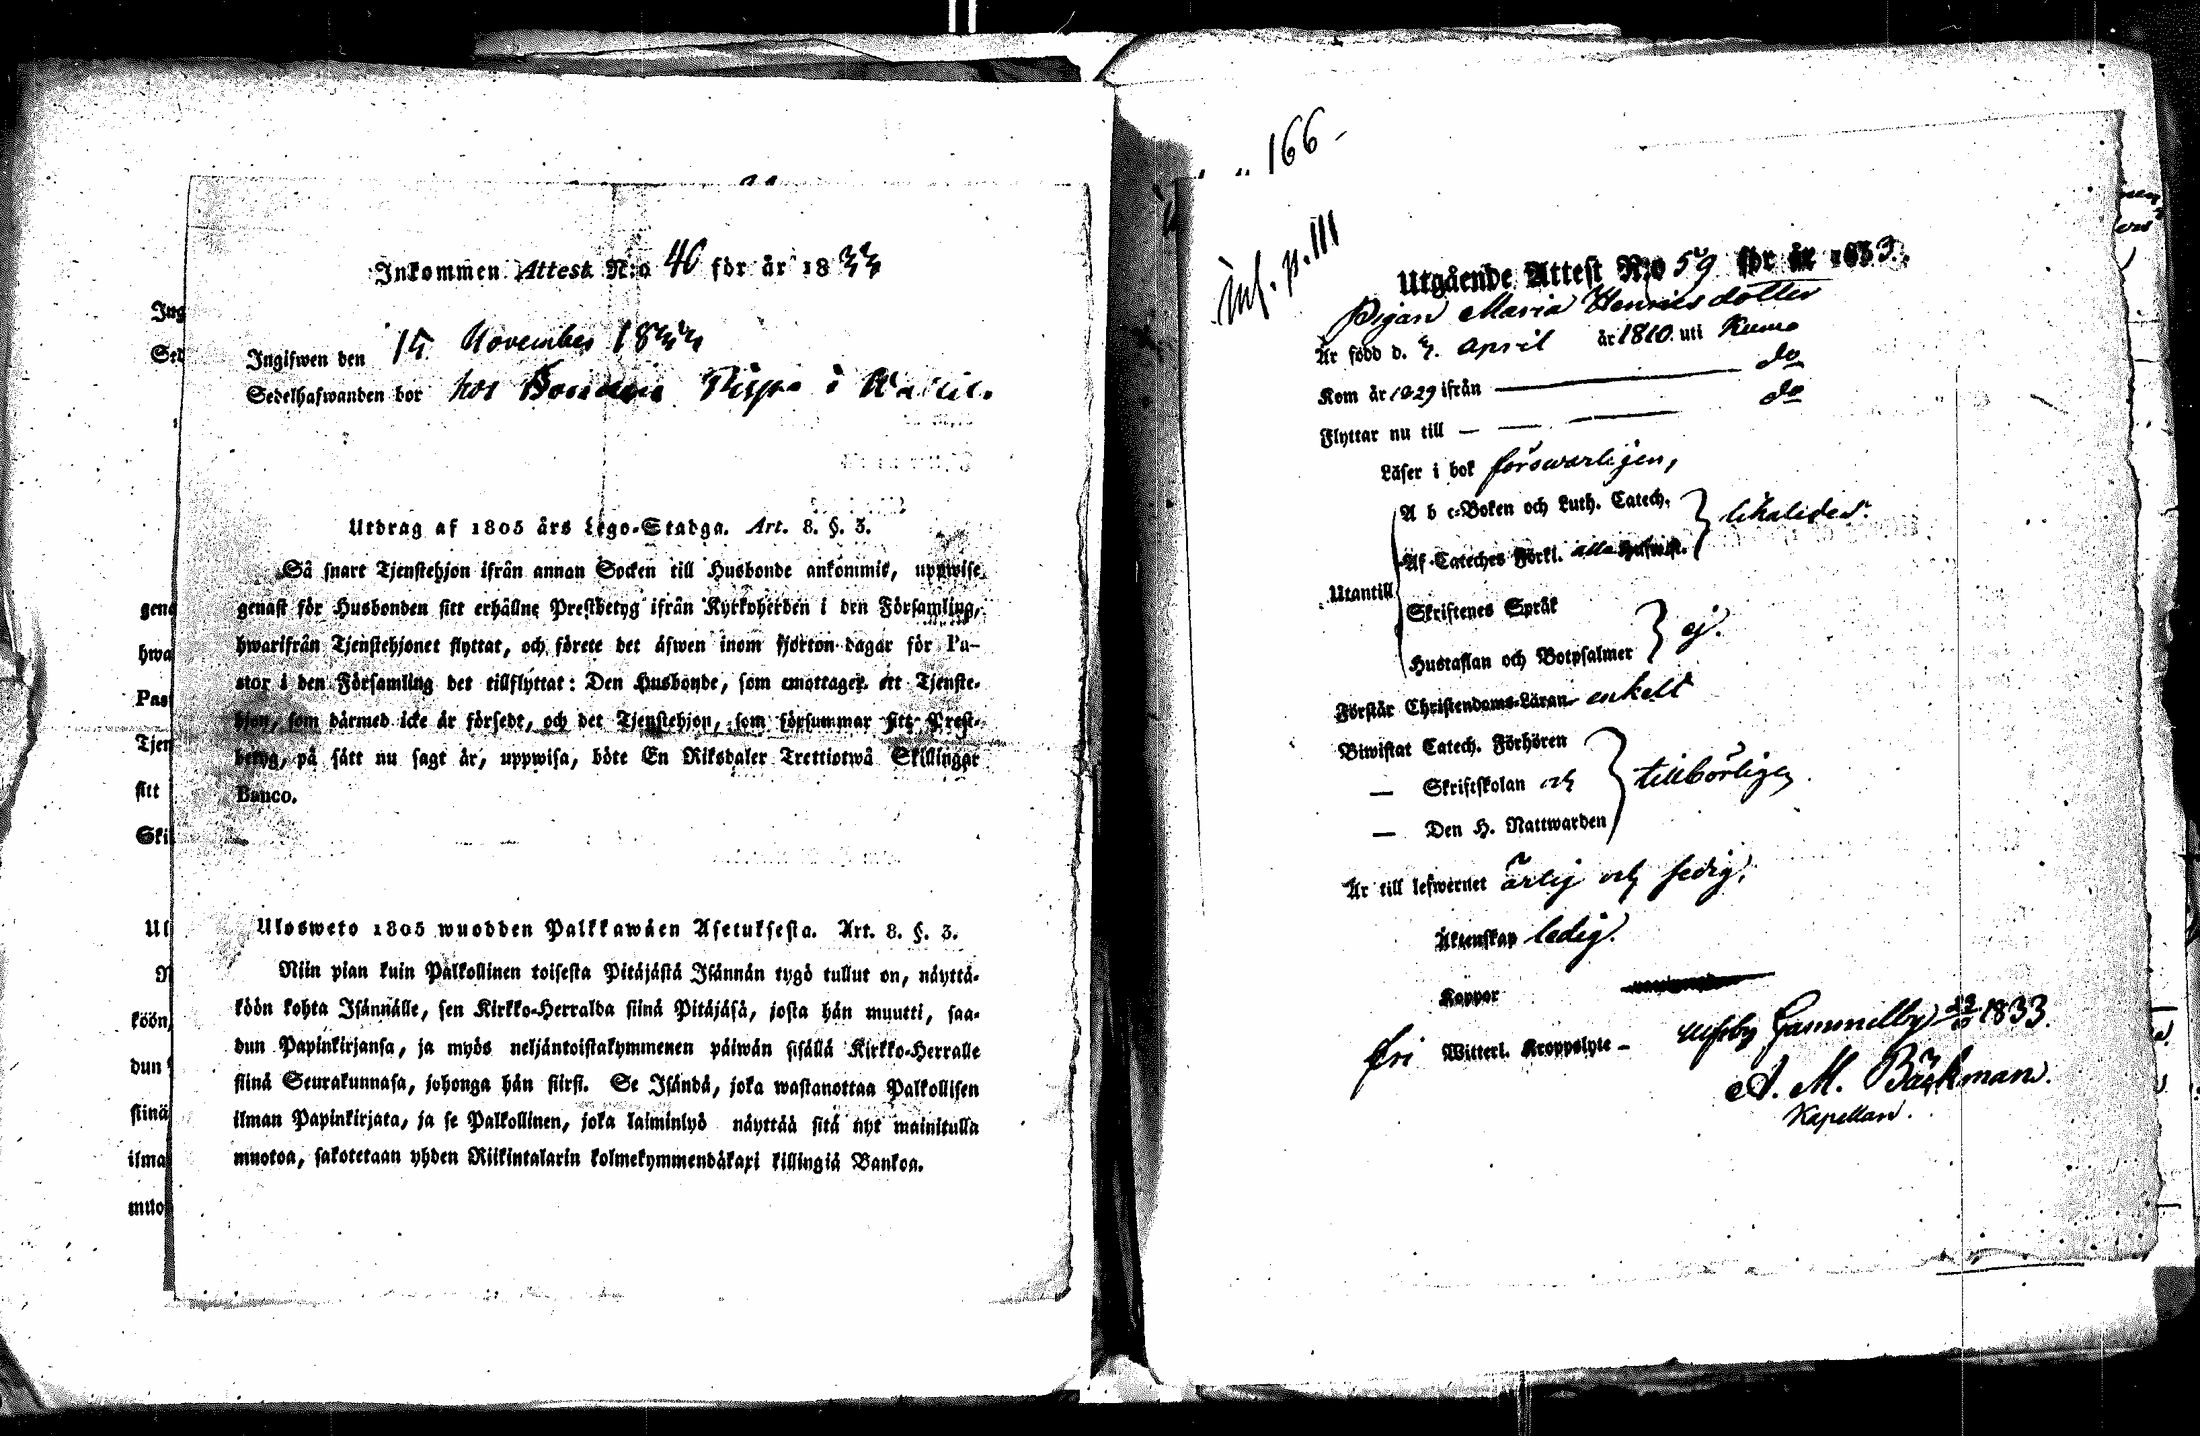 Inkommen Attest N:o 40 för år 1833
Ingifwen den 15 November 1833
Sedelhafwanden bor hos Bonden i
Utdrag af 1805 års Lego-Stadga. Art. 8. §. 3.
Så snart Tjenstehjon ifrån annan Socken till Husbonde ankommit, uppwise
genast för Husbonden sitt erhållne Prestbetyg ifrån Kyrkoherden i den Församling,
hwarifrån Tjenstehjonet flyttat, och förete det äfwen inom fjorton dagar för Pa-
stor i den Församling det tillflyttat: Den Husbonde, som emottager ett Tjenste-
hjon, som därmed icke är försedt, och det Tjenstehjon, som försummar sitt Prest-
betyg, på sätt nu sagt är, uppwisa, böte En Riksdaler Trettiotwå Skillingar
Banco.
Ulosweto 1805 wuodden Palkkawäen Asetuksesta. Art. 8. §. 3.
Niin pian kuin Palkollinen toisesta Pitäjästä Isännän tygö tullut on, näyttä-
köön kohta Isännälle, sen Kirkko-Herralda siinä Pitäjäsä, josta hän muutti, saa-
dun Papinkirjansa, ja myös neljäntoistakymmenen päiwän sisällä Kirkko-Herralle
siinä Seurakunnasa, johonga hän siirsi. Se Isändä, joka wastanottaa Palkollisen
ilman Papinkirjata, ja se Palkollinen, joka laiminlyö näyttää sitä nyt mainitulla
muotoa, sakotetaan yhden Riikintalarin kolmekymmendäkaxi killingiä Bankoa.
166
inf. p. 111
Utgående Attest N:o 59 för år 1833.
Pigan Maria Henricsdotter
Är född d. 3. April år 1810. uti Kumo
Kom år 1829 ifrån do
Flyttar nu till do
Läser i bok förswarligen,
A b c-Boken och Luth. Catech.
likaledes.
Af Cateches Förkl. alla
Utantill
Skriftenes Språk
ej.
Hustaflan och Botpsalmer
Förstår Christendoms-Läran enkelt
Biwistat Catech. Förhören
— Skriftskolan och
tillbörligen
— Den H. Nattwarden
Är till lefwernet ärlig och sedig.
Äktenskap ledig.
Koppor
fri Witterl. Kroppslyte – Gammelby 1833.
A. M. Bäckman.
Kapellan.